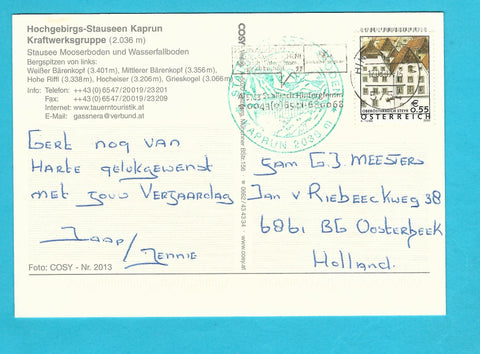 Hochgebirgs-Stauseen Kaprun
Kraftwerksgruppe (2.036 m)
Stausee Mooserboden und Wasserfallboden
Bergspitzen von links:
Weißer Bärenkopf (3.401m), Mittlerer Bärenkopf (3.356 m),
Hohe Riffl (3.338 m), Hocheiser (3.206 m), Grieskogel (3.066 m)
Info: Telefon: ++43(0)6547/20019/23201
Fax: ++43(0)6547/20019/23209
Internet: www.tauerntouristik.at
E-Mail: gassnera@verbund.at
Gert nog van
Harte gelukgewenst
met jouw Verjaardag
Jaap/
Jennie
Foto: COSY - Nr. 2013
COSY
0662/43 43 34 - www.cosy.at
KAPRUN 2036 m
€ 0,55
OBERÖSTERREICH STEYR
ÖSTERREICH
Fam G.J. MEESTERS
Jan v Riebeeckweg 38
6861 BG Oosterbeek
Holland.